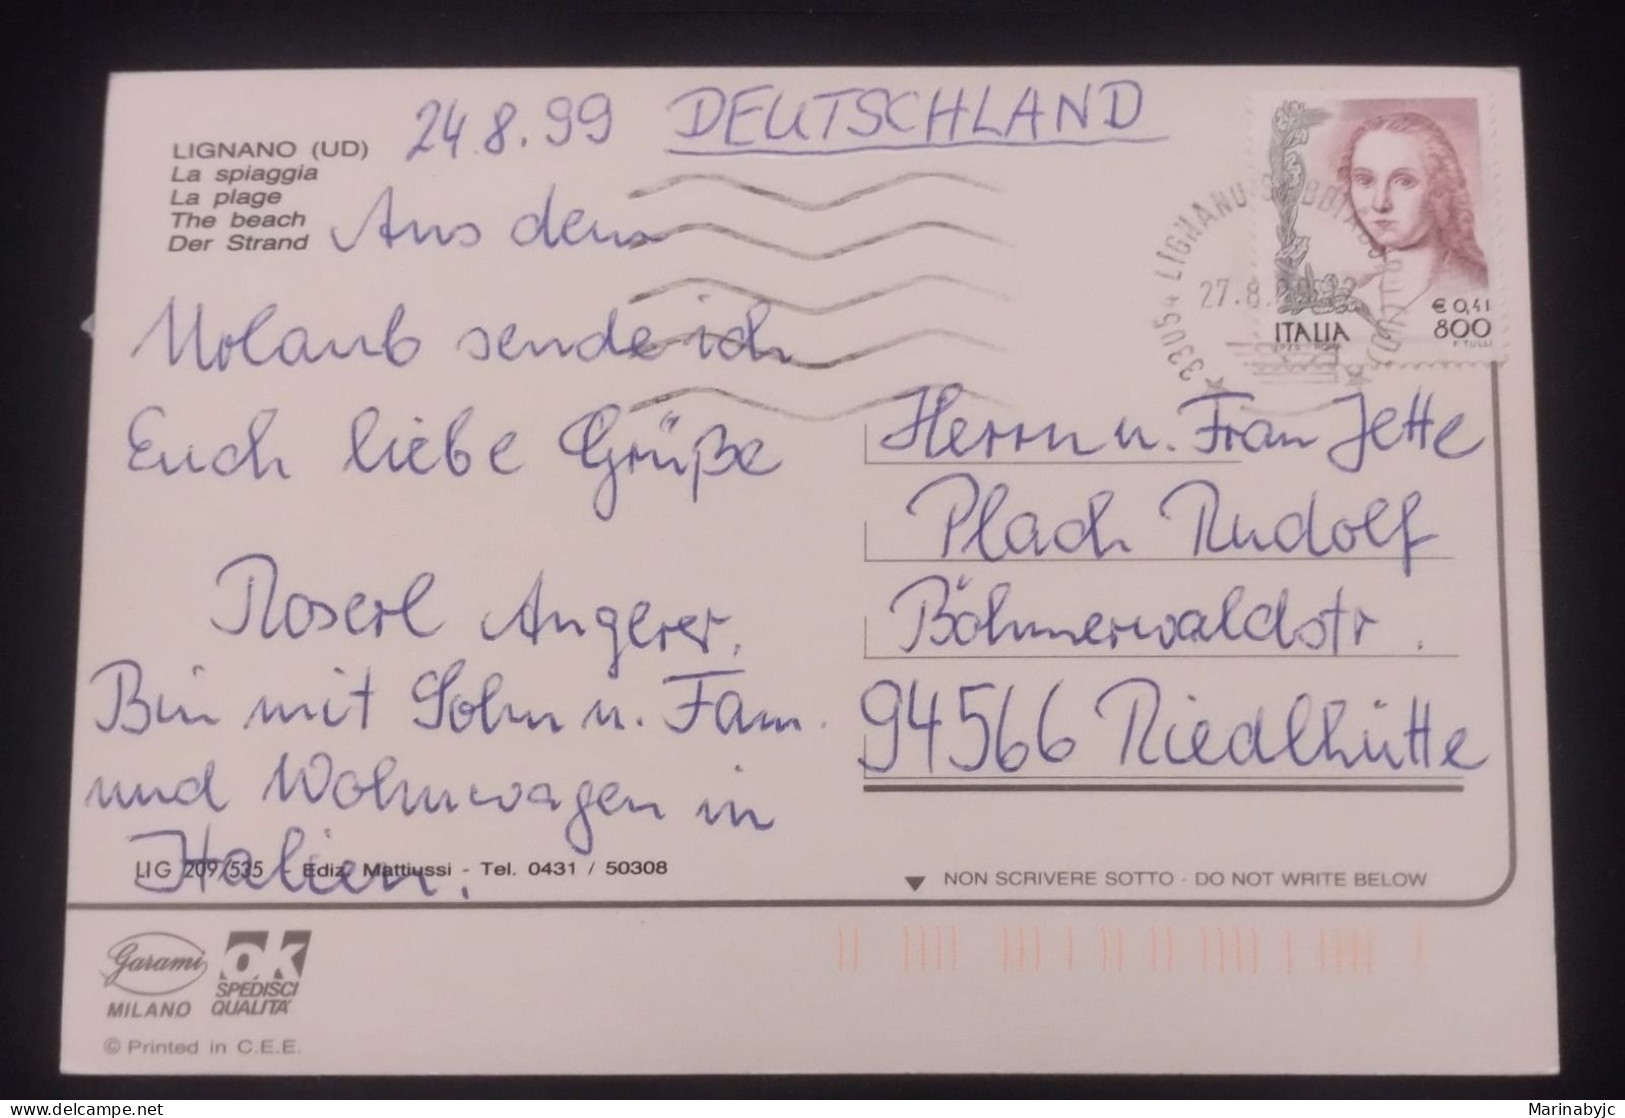 24.8.99 DEUTSCHLAND
LIGNANO (UD)
La spiaggia
La plage
The beach
Der Strand
Aus dem
Urlaub sende ich
Euch liebe Grüße
Roserl Angerer.
Bin mit Sohn u. Fam.
und Wohnwagen in
Italien.
LIG 209/535 - Ediz. Mattiussi - Tel. 0431 / 50308
33054 LIGNANO
27.8.
€ 0,41
ITALIA 800
F. TULLI
Herrn u. Frau Jette
Plach Rudolf
Böhmerwaldstr.
94566 Riedlhütte
NON SCRIVERE SOTTO - DO NOT WRITE BELOW
Garami
MILANO
OK
SPEDISCI
QUALITA'
© Printed in C.E.E.
delcampe.net
Marinabyjc